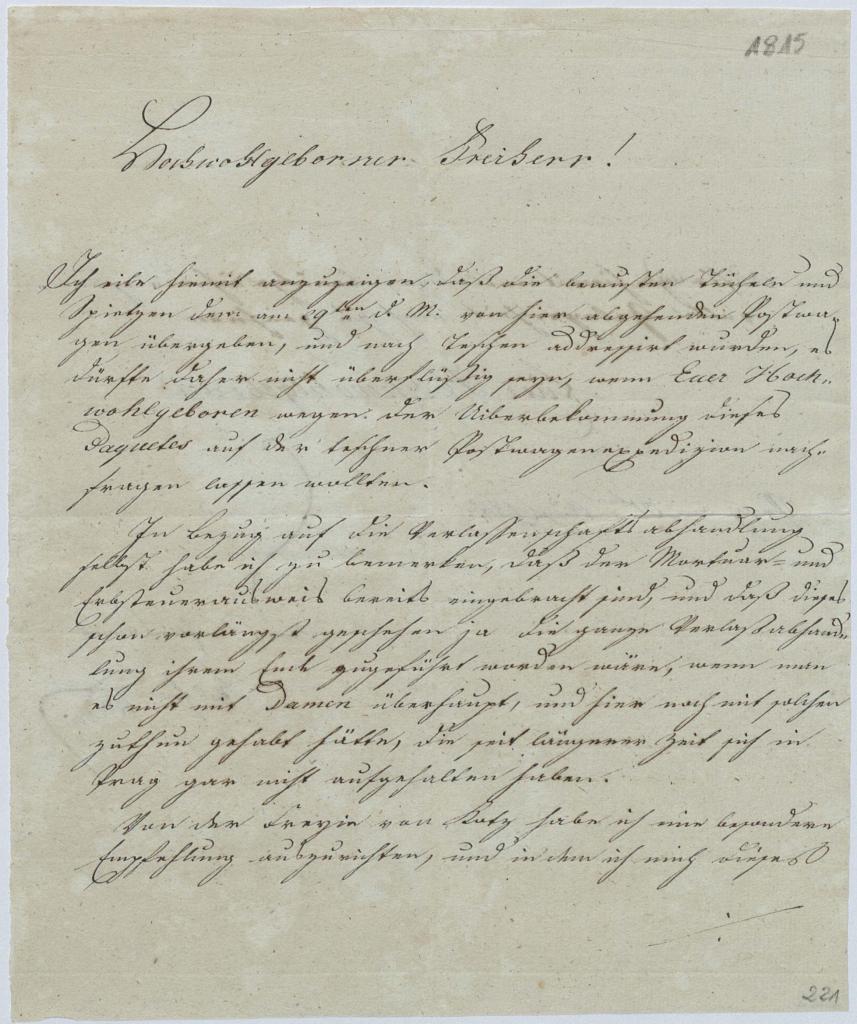 1815
Hochwohlgeborner Freiherr!
Ich eile hiemit anzuzeigen, daß die bewusten Tücheln und
Spietzen dem am 29ten d. M. von hier abgehenden Postwa-
gen übergeben, und nach Teschen addressirt wurden, es
dürfte daher nicht überflüßig seyn, wenn Euer Hoch-
wohlgeboren wegen der Uiberbekommung dieses
Paquetes auf der teschner Postwagenexpedizion nach-
fragen lassen wollten.
In Bezug auf die Verlassenschaftsabhandlung
selbst habe ich zu bemerken, daß der Mortuar- und
Erbsteuerausweis bereits eingebracht sind, und daß dieses
schon vorlängst geschehen ja die ganze Verlaßabhand-
lung ihrem Ende zugeführt worden wäre, wenn man
es nicht mit Damen überhaupt, und hier noch mit solchen
zuthun gehabt hätte, die seit längerer Zeit sich in
Prag gar nicht aufgehalten haben.
Von der Freyin von Kotz habe ich eine besondere
Empfehlung auszurichten, und in dem ich mich dieses
221